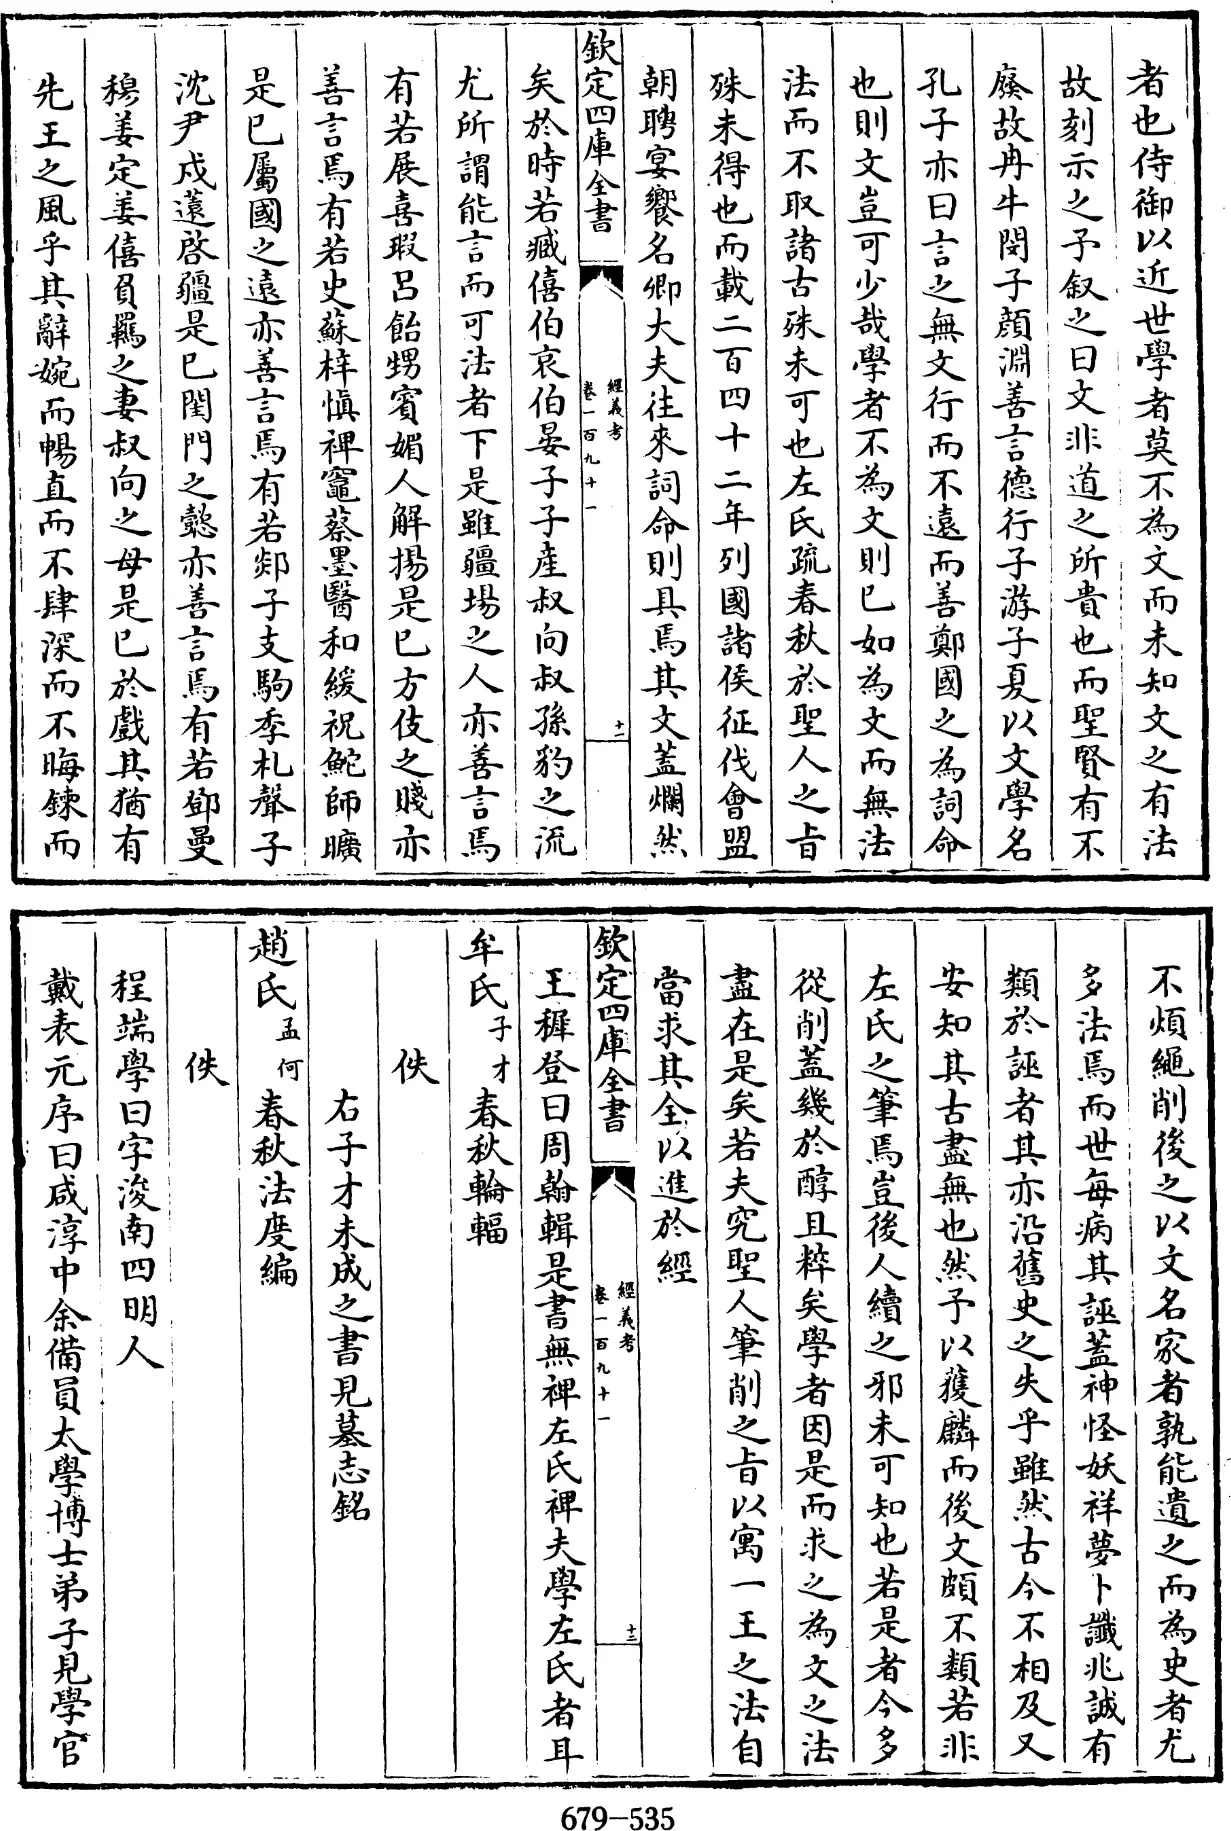 者也侍御以近世學者莫不為文而未知文之有法
故刻示之予叙之曰文非道之所貴也而聖賢有不
廢故冉牛閔子顔淵善言德行子游子夏以文學名
孔子亦曰言之無文行而不遠而善鄭國之為詞命
也則文豈可少哉學者不為文則已如為文而無法
法而不取諸古殊未可也左氏疏春秋於聖人之㫖
殊未得也而載二百四十二年列國諸侯征伐會盟
朝聘宴饗名卿大夫往來詞命則具焉其文蓋爛然
欽定四庫全書
經義考
卷一百九十一
十二
矣於時若臧僖伯哀伯晏子子産叔向叔孫豹之流
尤所謂能言而可法者下是雖疆埸之人亦善言焉
有若展喜瑕呂飴甥賓媚人解揚是已方伎之賤亦
善言焉有若史蘇梓慎禆竈蔡墨醫和緩祝鮀師曠
是已屬國之遠亦善言焉有若郯子支駒季札聲子
沈尹戍薳啓疆是已閨門之懿亦善言焉有若鄧曼
穆姜定姜僖負羈之妻叔向之母是已於戲其猶有
先王之風乎其辭婉而暢直而不肆深而不晦鍊而
不煩繩削後之以文名家者孰能遺之而為史者尤
多法焉而世每病其誣蓋神怪妖祥夢卜讖兆誠有
類於誣者其亦沿舊史之失乎雖然古今不相及又
安知其古盡無也然予以獲麟而後文頗不類若非
左氏之筆焉豈後人續之邪未可知也若是者今多
從削蓋幾於醇且粹矣學者因是而求之為文之法
盡在是矣若夫究聖人筆削之㫖以寓一王之法自
當求其全以進於經
欽定四庫全書
經義考
卷一百九十一
十三
王穉登曰周翰輯是書無禆左氏禆夫學左氏者耳
牟氏子才春秋輪輻
佚
右子才未成之書見墓志銘
趙氏孟何春秋法度編
佚
程端學曰字浚南四明人
戴表元序曰咸淳中余備員太學博士弟子見學官
679-535